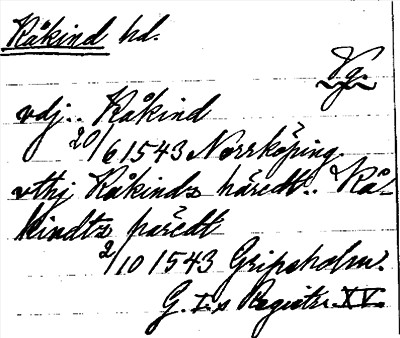 Råkind hd.
Vg.
vdj.. Råkind
20/6 1543 Norrköping.
vthj Råkinds häredt.. Rå-
kindtz häredt
2/10 1543 Gripsholm.
G. I:s Registr. XV.